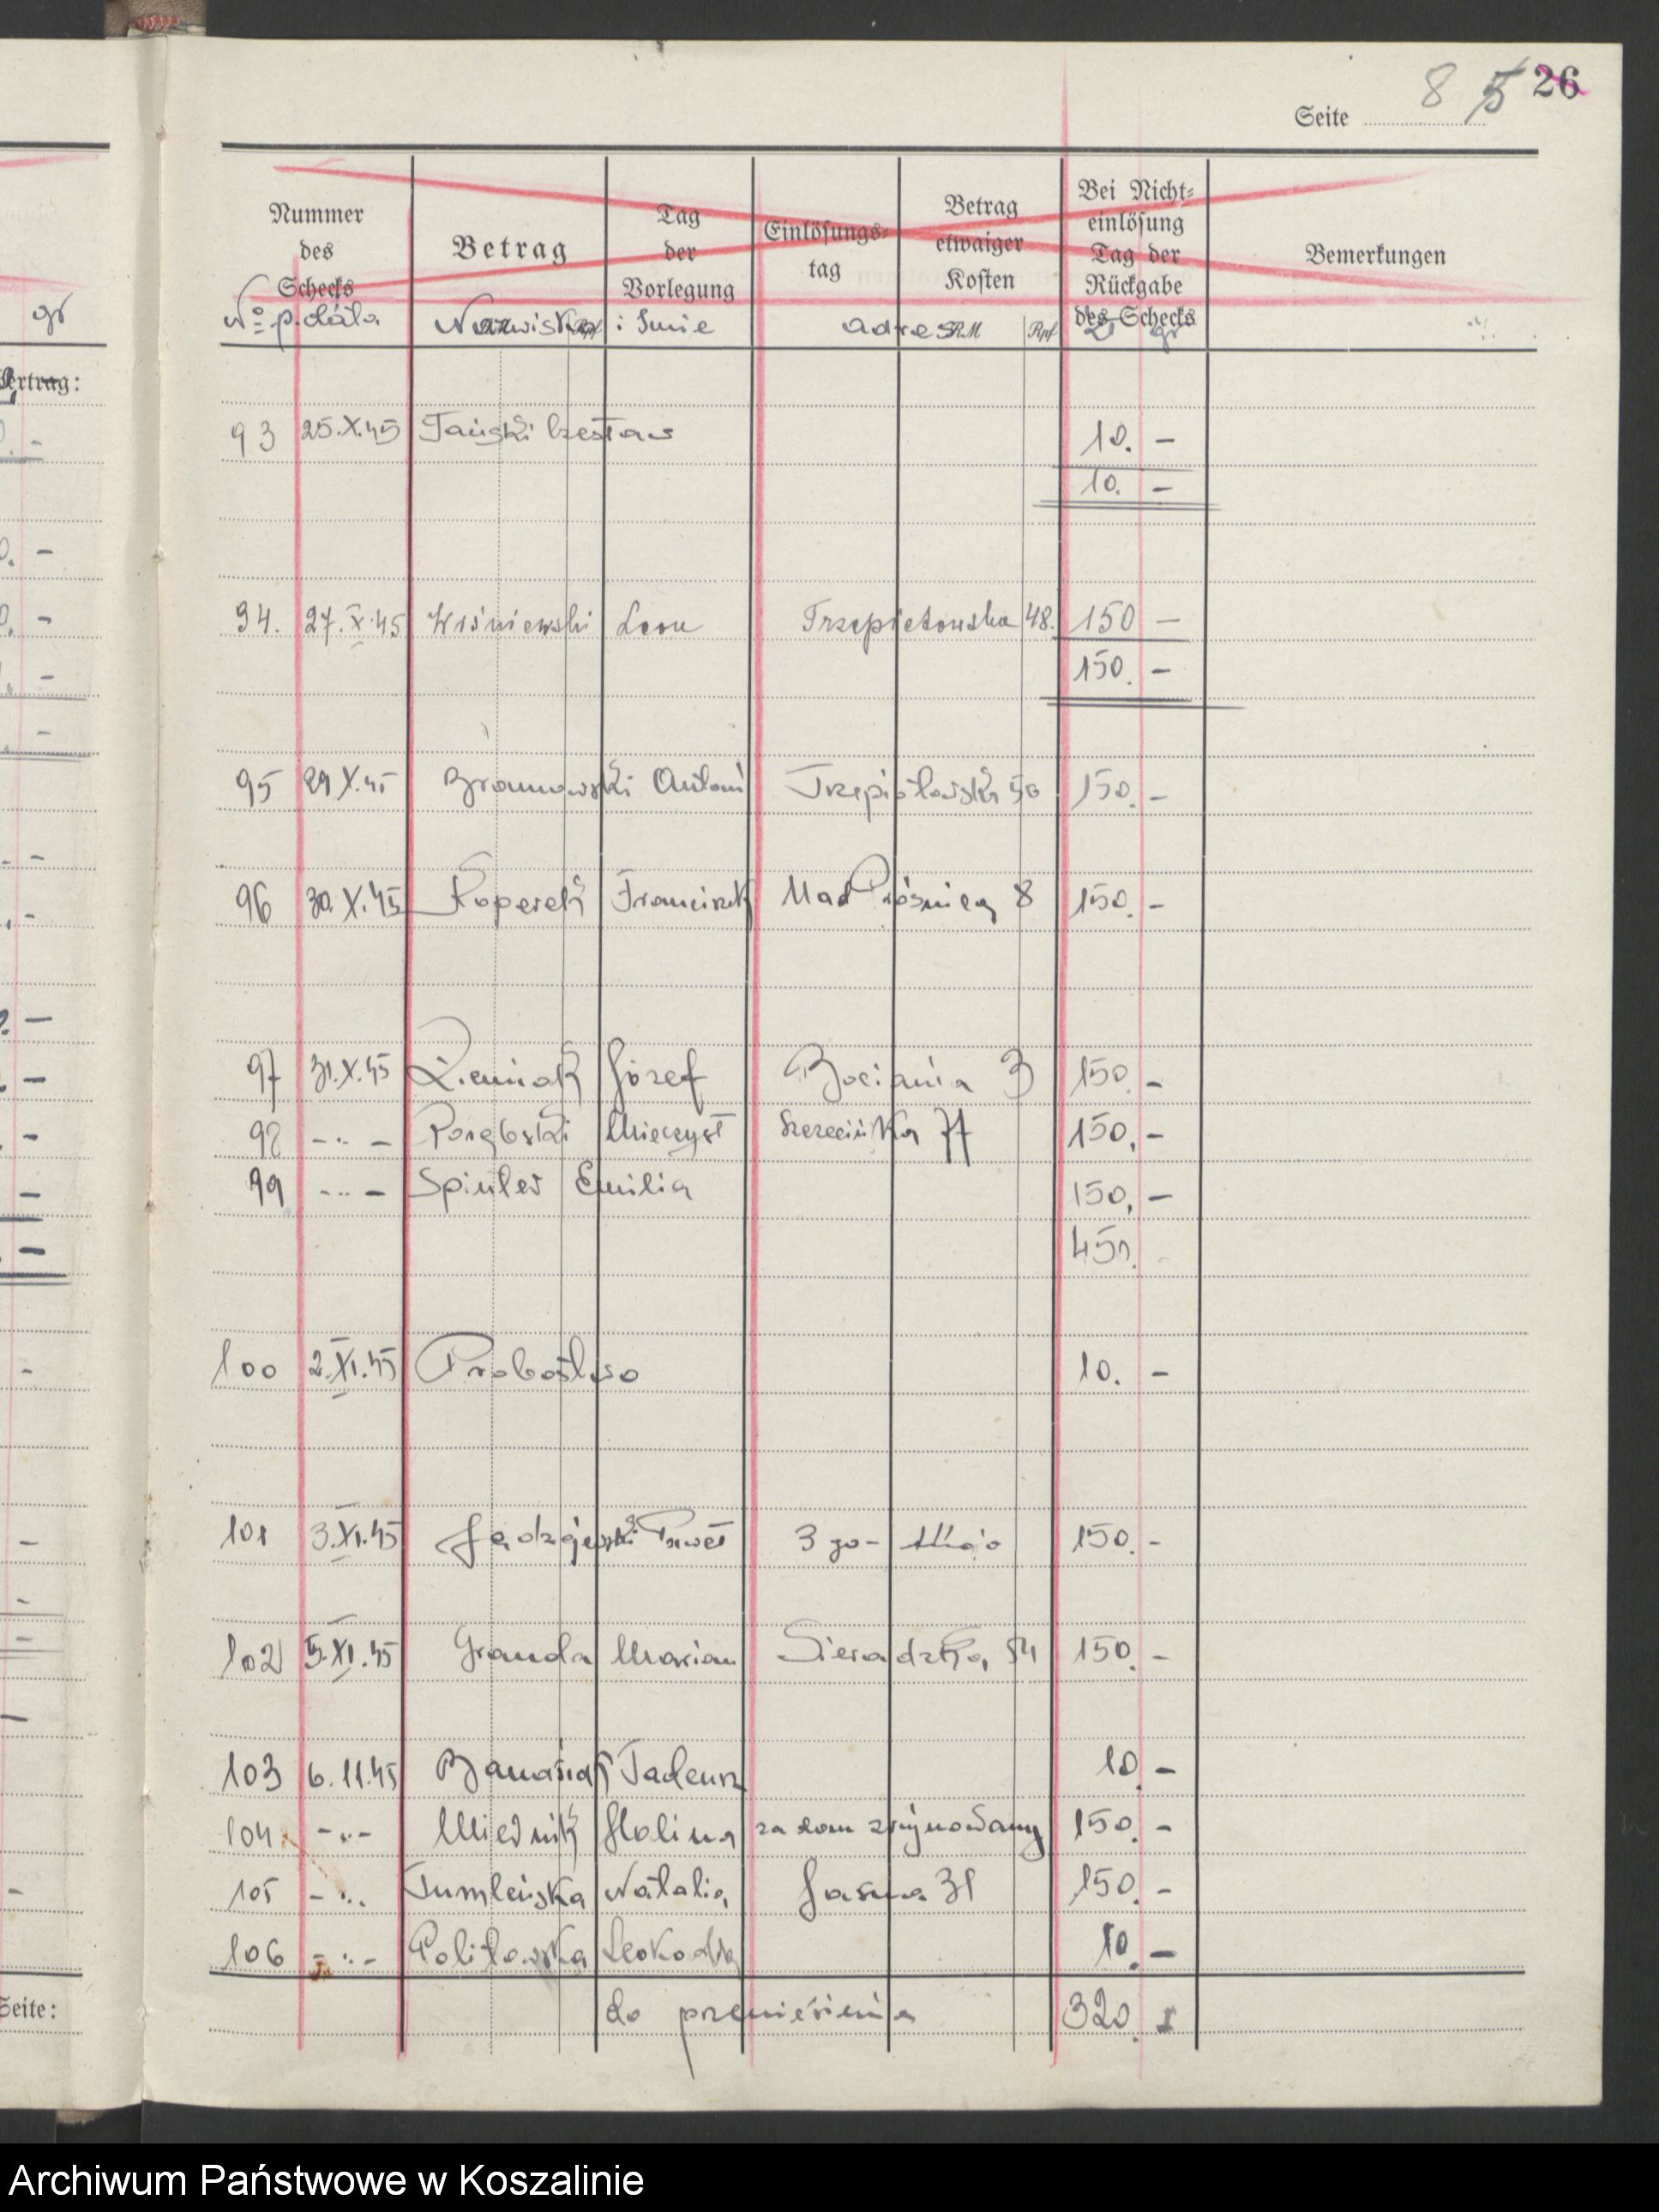 8 5 26
Seite
Nummer des Schecks
Betrag
Tag der Vorlegung
Einlösungs-tag
Betrag etwaiger Kosten
Bei Nicht-einlösung Tag der Rückgabe des Schecks
Bemerkungen
gr
No p. data Nazwisko Rpf i Imie adres RM Rpf zł gr
Übertrag:
93 25.X.45 Tański Czesław 10. -
10. -
94. 27.X.45 Wiśniewski Leon 48. 150 -
150. -
95 29 X.45 Antoni 50 150. -
96 30.X.45 Koperek Franciszek Nad 8 150. -
97 31.X.45 Ziemiak Józef Bociania 3 150. -
98 -..- Porębski Mieczysł Szczecińska 77 150, -
99 -..- Spinler Emilia 150, -
450.
100 2.XI.45 Probostwo 10. -
101 3.XI.45 Paweł 3 go - Maja 150. -
102 5.XI.45 Granda Marian Sieradzka 54 150. -
103 6.11.45 Banasiak Tadeusz 10. -
104 -..- Miednik Halina za dom zrujnowany 150. -
105 -.. Natalia Jasna 31 150. -
106 -..- Politowska Leokadia 10. -
Seite:
do przeniesienia 320.
Archiwum Państwowe w Koszalinie